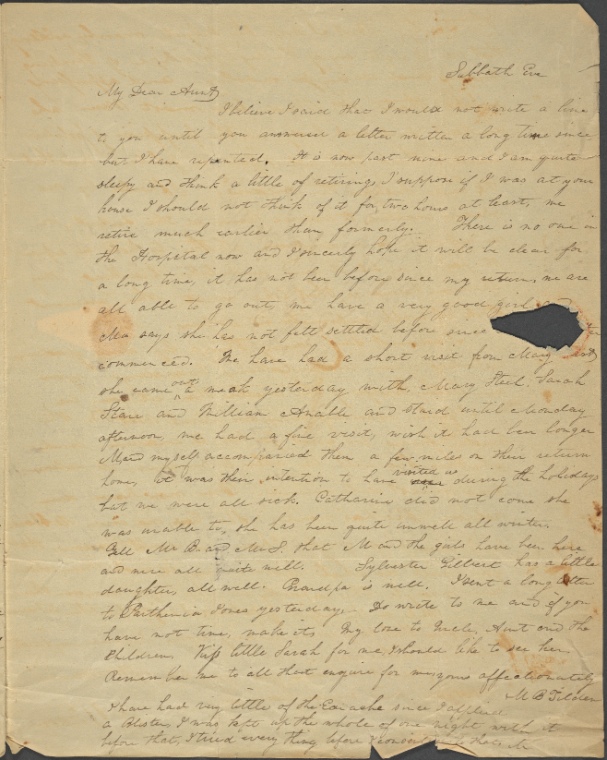 Sabbath Eve
My Dear Aunt
I believe I said that I would not write a line
to you until you answered a letter written a long time since
but I have repented. It is now past nine and I am quite
sleepy and think a little of retiring, I suppose if I was at your
house I should not think of it for two hours at least, we
retire much earlier than formerly. There is no one in
the Hospital now and I sincerly hope it will be clear for
a long time, it has not been before since my return, we are
all able to go out, we have a very good girl
Ma says she has not felt settled before since
commenced. We have had a short visit from Mary
she came out a week yesterday with Mary Steel, Sarah
and William Anable and staid until Monday
afternoon, we had a fine visit, wish it had been longer
M and myself accompanied them a few miles on their return
home, it was their intention to have visited us during the holidays
but we were all sick. Catharine did not come she
was unable to, she has been quite unwell all winter
Tell Mr B. and Mr S. that M and the girls have been here
and were all well. Sylvester Gilbert has a little
daughter, all well. Grandpa is well. I sent a long letter
to Parthenia Jones yesterday. Do write to me and if you
have not time, make it. My love to Uncle, Aunt and the
Children Kiss little Sarah for me, I should like to see her
Remember me to all that enquire for me, yours affectionately
M B Tilden
I have had very little of the Ear ache since I applied
a Blister, I was kept up the whole of one night with it
before that, I tried every thing before I